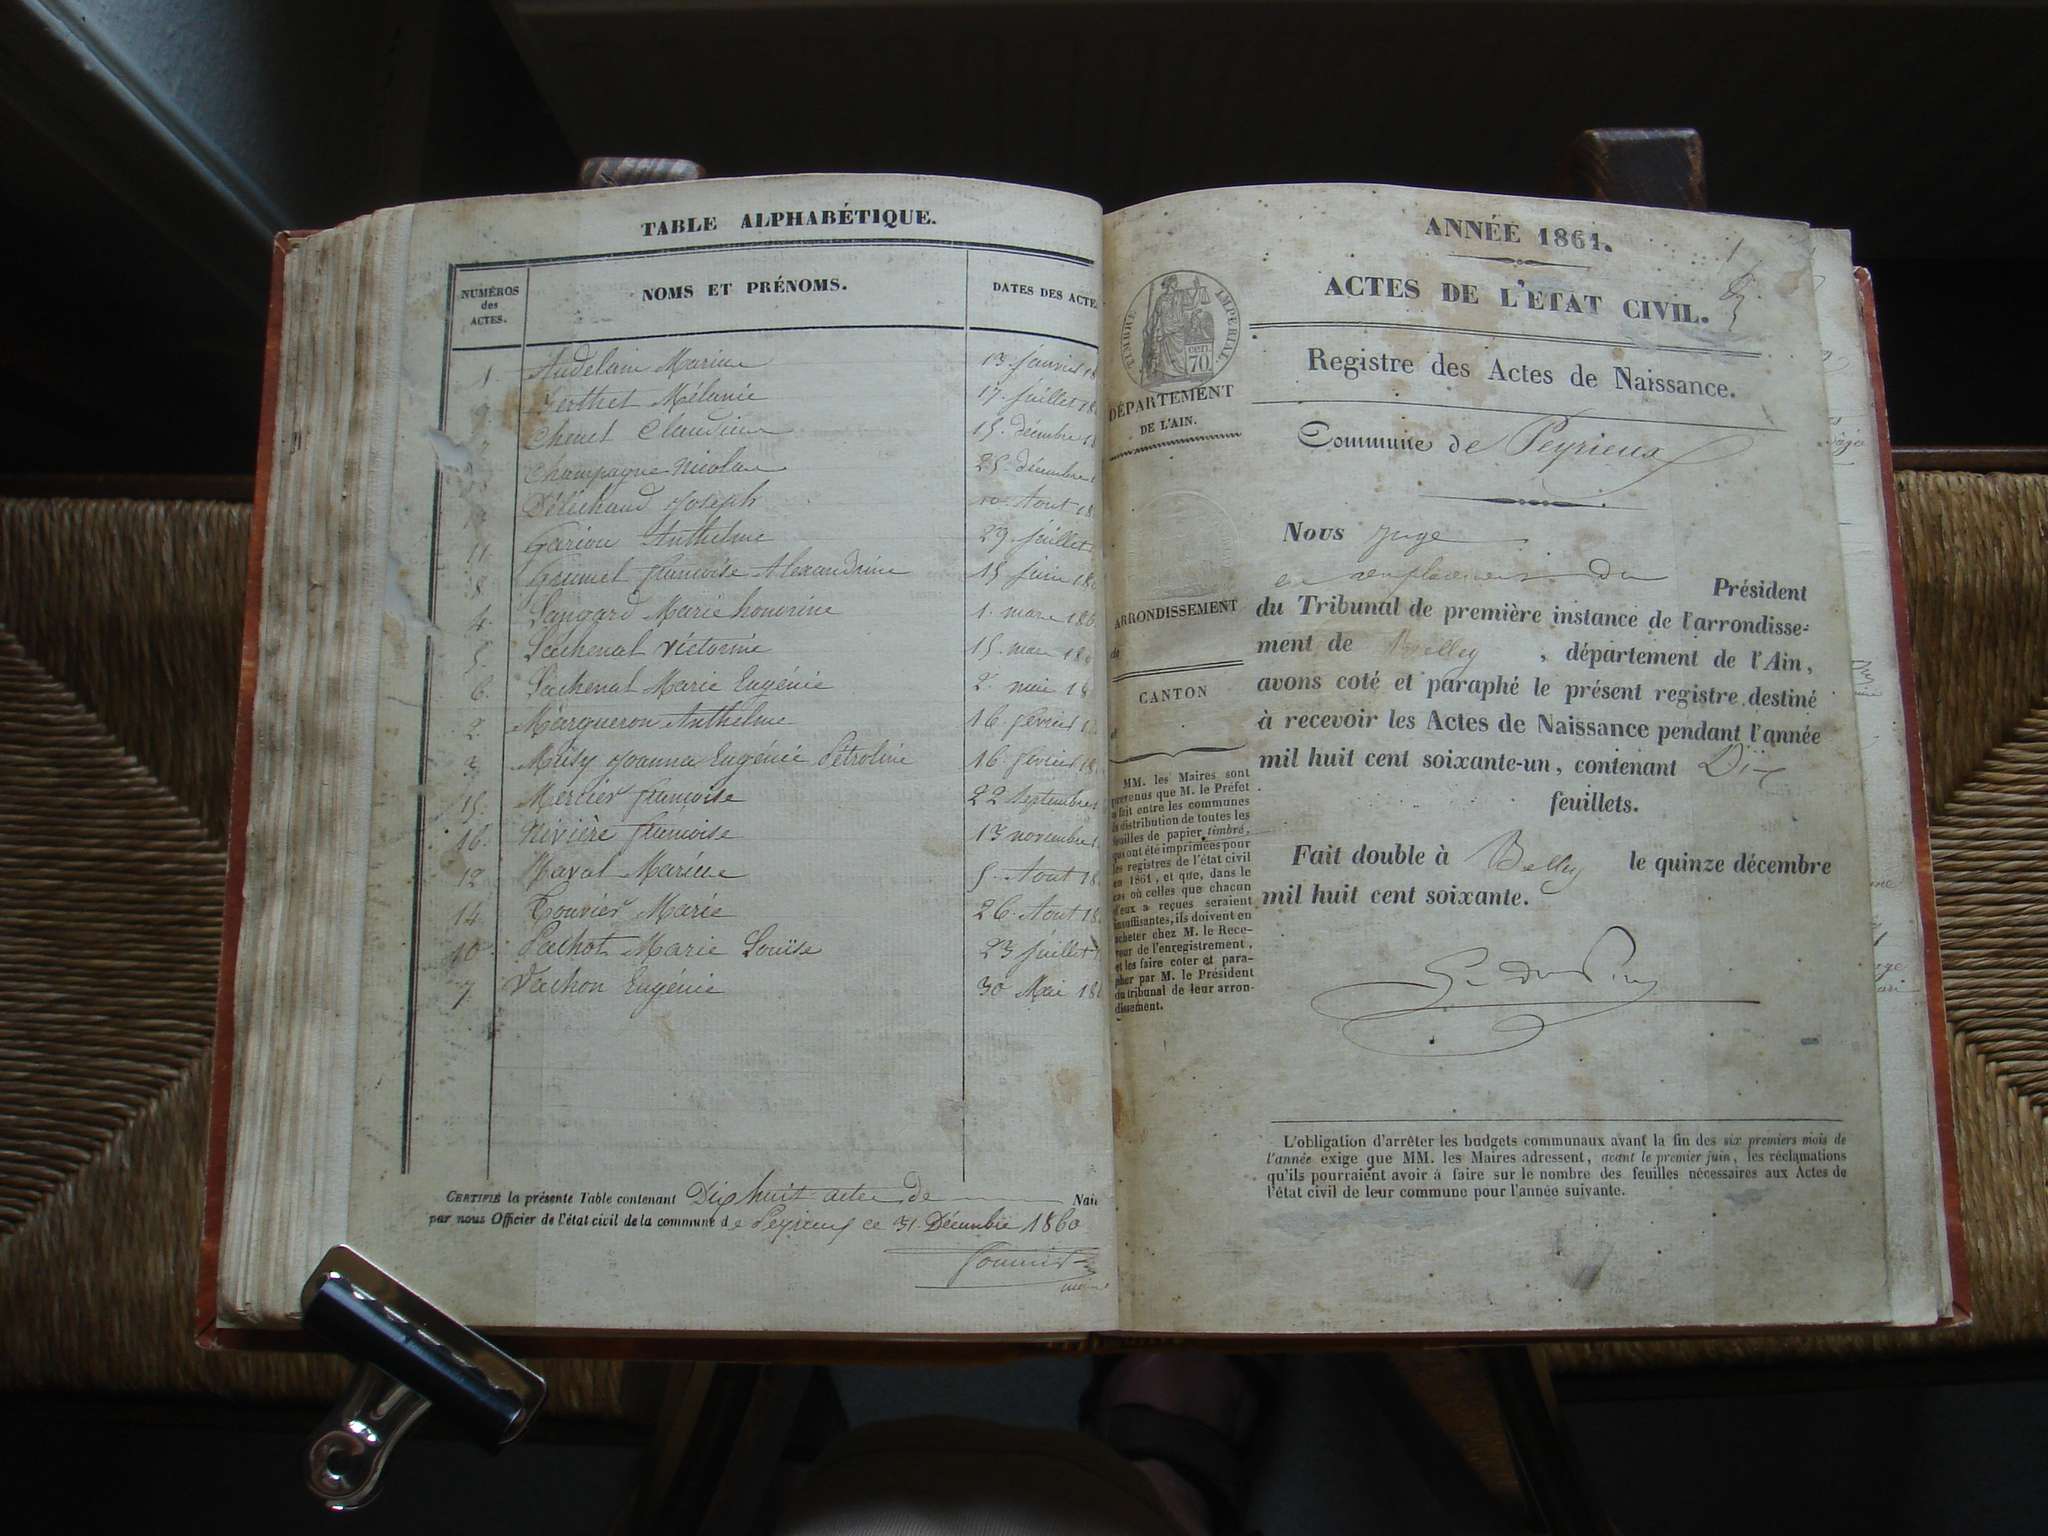 TABLE ALPHABÉTIQUE.
NUMÉROS
des
ACTES.
NOMS ET PRÉNOMS.
DATES DES ACTE
1 Audelain Marine 13 janvier 18
Berthet Mélanie 17 juillet 18
Chenet Claudine 15 décembre 18
Champagne Nicolas 25 décembre
Déléchaud Joseph 10 Aout 18
11 Garion Anthelme 29 juillet
8 Grumet françoise Alexandrine 15 juin 18
4 Marie honorine 1 mars 186
5 Lachenal Victorine 15 mars 18
6 Lachenal Marie Eugénie 2 mai 18
2 Margueron Anthelme 16 février
3 Joanna Eugénie Pétroline 16 février 18
15 Mercier françoise 22 Septembre
16 Nivière françoise 13 novembre
12 Marie 5 Aout 18
14 Touvier Marie 26 Aout 18
10 Pachot Marie Louise 23 juillet
7 Vachon Eugénie 30 Mai 18
CERTIFIÉ la présente Table contenant Dix huit actes de Nais
par nous Officier de l'état civil de la commune de Peyrieux ce 31 Décembre 1860
ANNÉE 1861.
ACTES DE L'ETAT CIVIL.
TIMBRE IMPERIAL
cen
70
DÉPARTEMENT
DE L'AIN.
Registre des Actes de Naissance.
Commune de Peyrieux
Nous Juge
en remplacement du Président
du Tribunal de première instance de l'arrondisse-
ment de Belley, département de l'Ain,
avons coté et paraphé le présent registre destiné
à recevoir les Actes de Naissance pendant l'année
mil huit cent soixante-un, contenant Dix
feuillets.
Fait double à Belley le quinze décembre
mil huit cent soixante.
ARRONDISSEMENT
de
CANTON
d
MM. les Maires sont
prévenus que M. le Préfet
a fait entre les communes
la distribution de toutes les
feuilles de papier timbré,
qui ont été imprimées pour
les registres de l'état civil
en 1861, et que, dans le
cas où celles que chacun
d'eux a reçues seraient
insuffisantes, ils doivent en
acheter chez M. le Rece-
veur de l'enregistrement,
et les faire coter et para-
pher par M. le Président
du tribunal de leur arron-
dissement.
L'obligation d'arrêter les budgets communaux avant la fin des six premiers mois de
l'année exige que MM. les Maires adressent, avant le premier juin, les réclamations
qu'ils pourraient avoir à faire sur le nombre des feuilles nécessaires aux Actes de
l'état civil de leur commune pour l'année suivante.